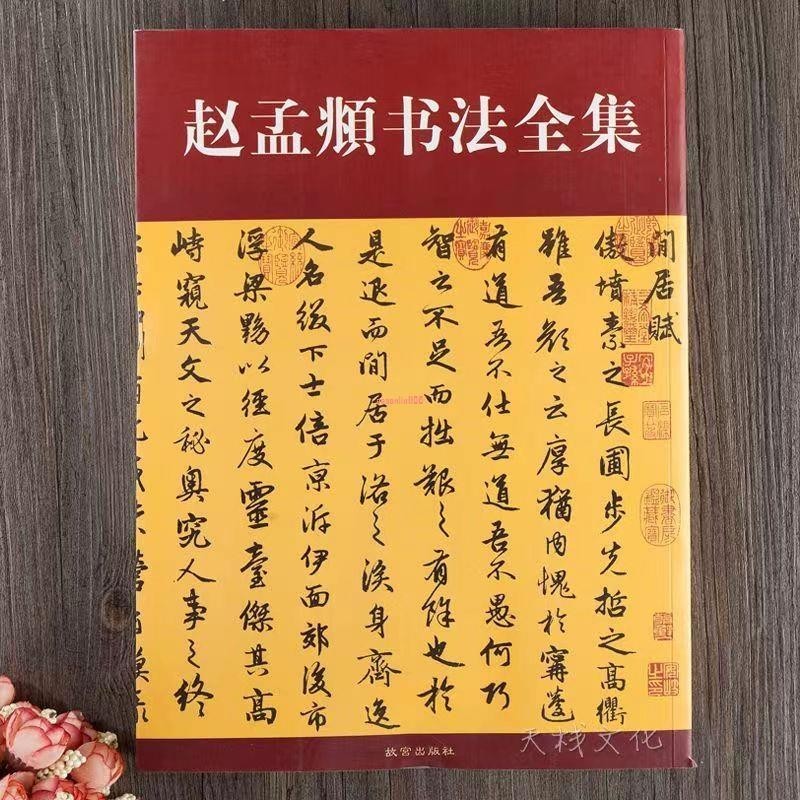 赵孟頫书法全集
閒居賦
傲墳素之長圃步先哲之高衢
雖吾顏之云厚猶内愧於甯蘧
有道吾不仕無道吾不愚何巧
智之不足而拙艱之有餘也於
是退而閒居于洛之涘身齊逸
人名綴下士倍京泝伊面郊後市
浮梁黝以徑度靈臺傑其高
峙窺天文之秘奧究人事之終
故宫出版社
天栈文化